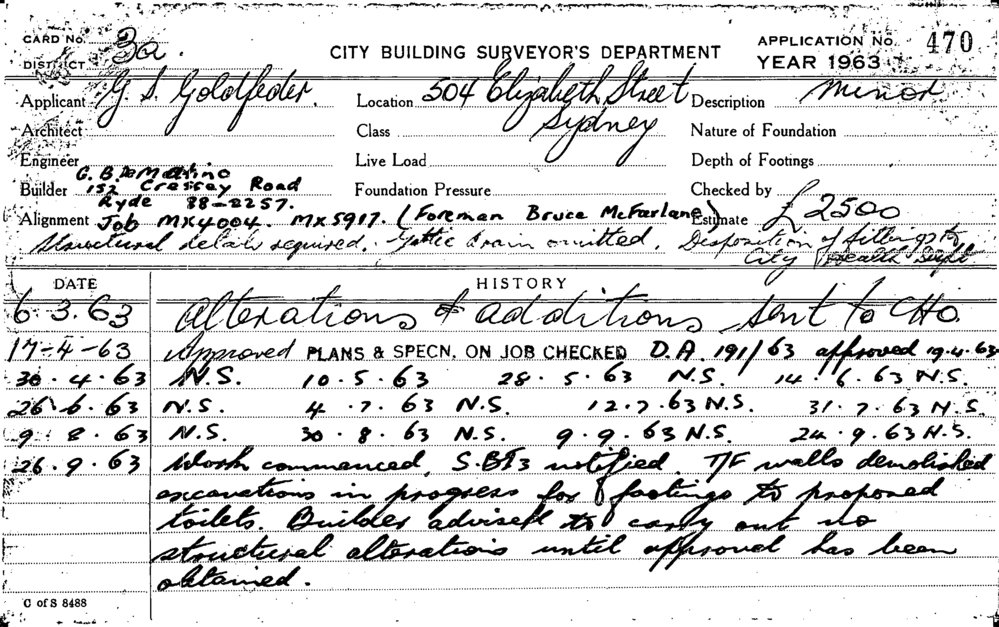 CARD No. 3a. CITY BUILDING SURVEYOR'S DEPARTMENT APPLICATION No. 470
DISTRICT YEAR 1963
Applicant G. S. Goldfeder. Location 504 Elizabeth Street Description Minor
Architect Class Sydney Nature of Foundation
Engineer Live Load Depth of Footings
G. B. De Martino
Builder 152 Cressey Road Foundation Pressure Checked by
Ryde 88-2257.
Alignment Job MX4004. MX5917. (Foreman Bruce McFarlane) Estimate £2500
Structural details required. Gattic drain omitted. Disposition of fillings to
City Health Dept
DATE HISTORY
6.3.63 Alterations & additions sent to CHO.
17-4-63 Approved PLANS & SPECN. ON JOB CHECKED D.A. 191/63 approved 19.4.63
30.4.63 N.S. 10.5.63 28.5.63 N.S. 14.6.63 N.S.
26.6.63 N.S. 4.7.63 N.S. 12.7.63 N.S. 31.7.63 N.S.
9.8.63 N.S. 30.8.63 N.S. 9.9.63 N.S. 24.9.63 N.S.
26.9.63 Work commenced, notified. T/F walls demolished
excavations in progress for footings to proposed
toilets. Builder advised to carry out no
structural alterations until approval has been
obtained.
C of S 8488